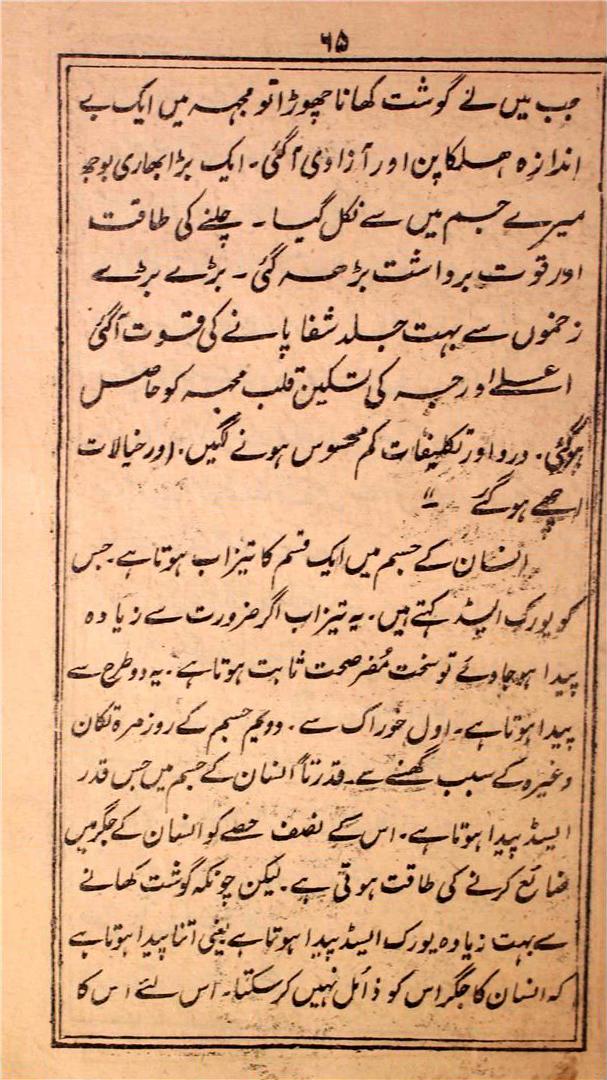 ۶۵
جب میں نے گوشت کھانا چھوڑا تو مجہہ میں ایک بے
اندازہ ہلکا پن اور آزادی آگئی۔ ایک بڑا بھاری بوجھ
میرے جسم میں سے نکل گیا۔ چلنے کی طاقت
اور قوت برداشت بڑھ گئی۔ بڑے بڑے
زخموں سے بہت جلد شفا پانے کی قوت آگئی
اعلےٰ درجہ کی تسکین قلب مجہہ کو حاصل
ہوگئی۔ درد اور تکلیفات کم محسوس ہونے لگیں۔ اور خیالات
اچھے ہوگئے ؎"
انسان کے جسم میں ایک قسم کا تیزاب ہوتا ہے۔ جس
کو یورک ایسڈ کہتے ہیں۔ یہ تیزاب اگر ضرورت سے زیادہ
پیدا ہوجاوے تو سخت مُضر صحت ثابت ہوتا ہے۔ یہ دو طرح سے
پیدا ہوتا ہے۔ اول خوراک سے۔ دویم جسم کے روزمرہ تکان
وغیرہ کے سبب گھسنے سے۔ قدرتاً انسان کے جسم میں جس قدر
ایسڈ پیدا ہوتا ہے۔ اس کے نصف حصے کو انسان کے جگر میں
ضائع کرنے کی طاقت ہوتی ہے۔ لیکن چونکہ گوشت کھانے
سے بہت زیادہ یورک ایسڈ پیدا ہوتا ہے یعنی اتنا پیدا ہوتا ہے
کہ انسان کا جگر اس کو ذائل نہیں کرسکتا۔ اس لئے اس کا